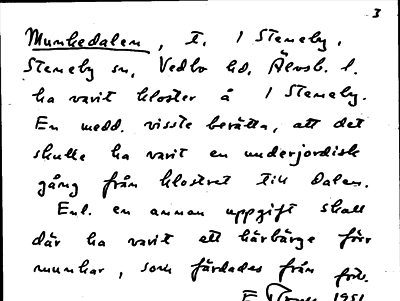 3
Munkedalen, t. 1 Steneby,
Steneby sn, Vedbo hd, Älvsb. l.
ha varit kloster å 1 Steneby.
En medd. visste berätta, att det
skulle ha varit en underjordisk
gång från klostret till dalen.
Enl. en annan uppgift skall
där ha varit ett härbärge för
munkar, som färdades från
1951